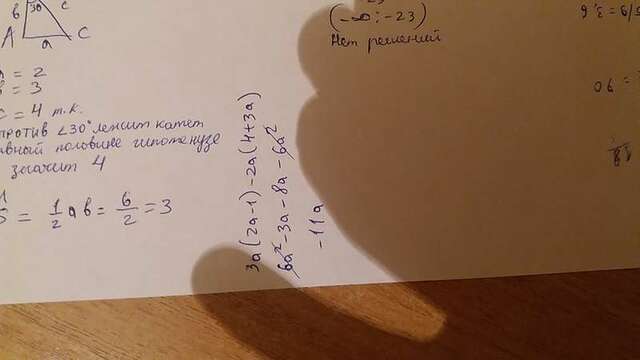 в 30° c
A a C
a = 2
в = 3
c = 4 т.к.
против ∠30° лежит катет
равный половине гипотенузе
значит 4
S = 1/2 a в = 6/2 = 3
(-∞; -23)
Нет решений
3a(2a-1)-2a(4+3a)
6a²-3a-8a-6a²
-11a